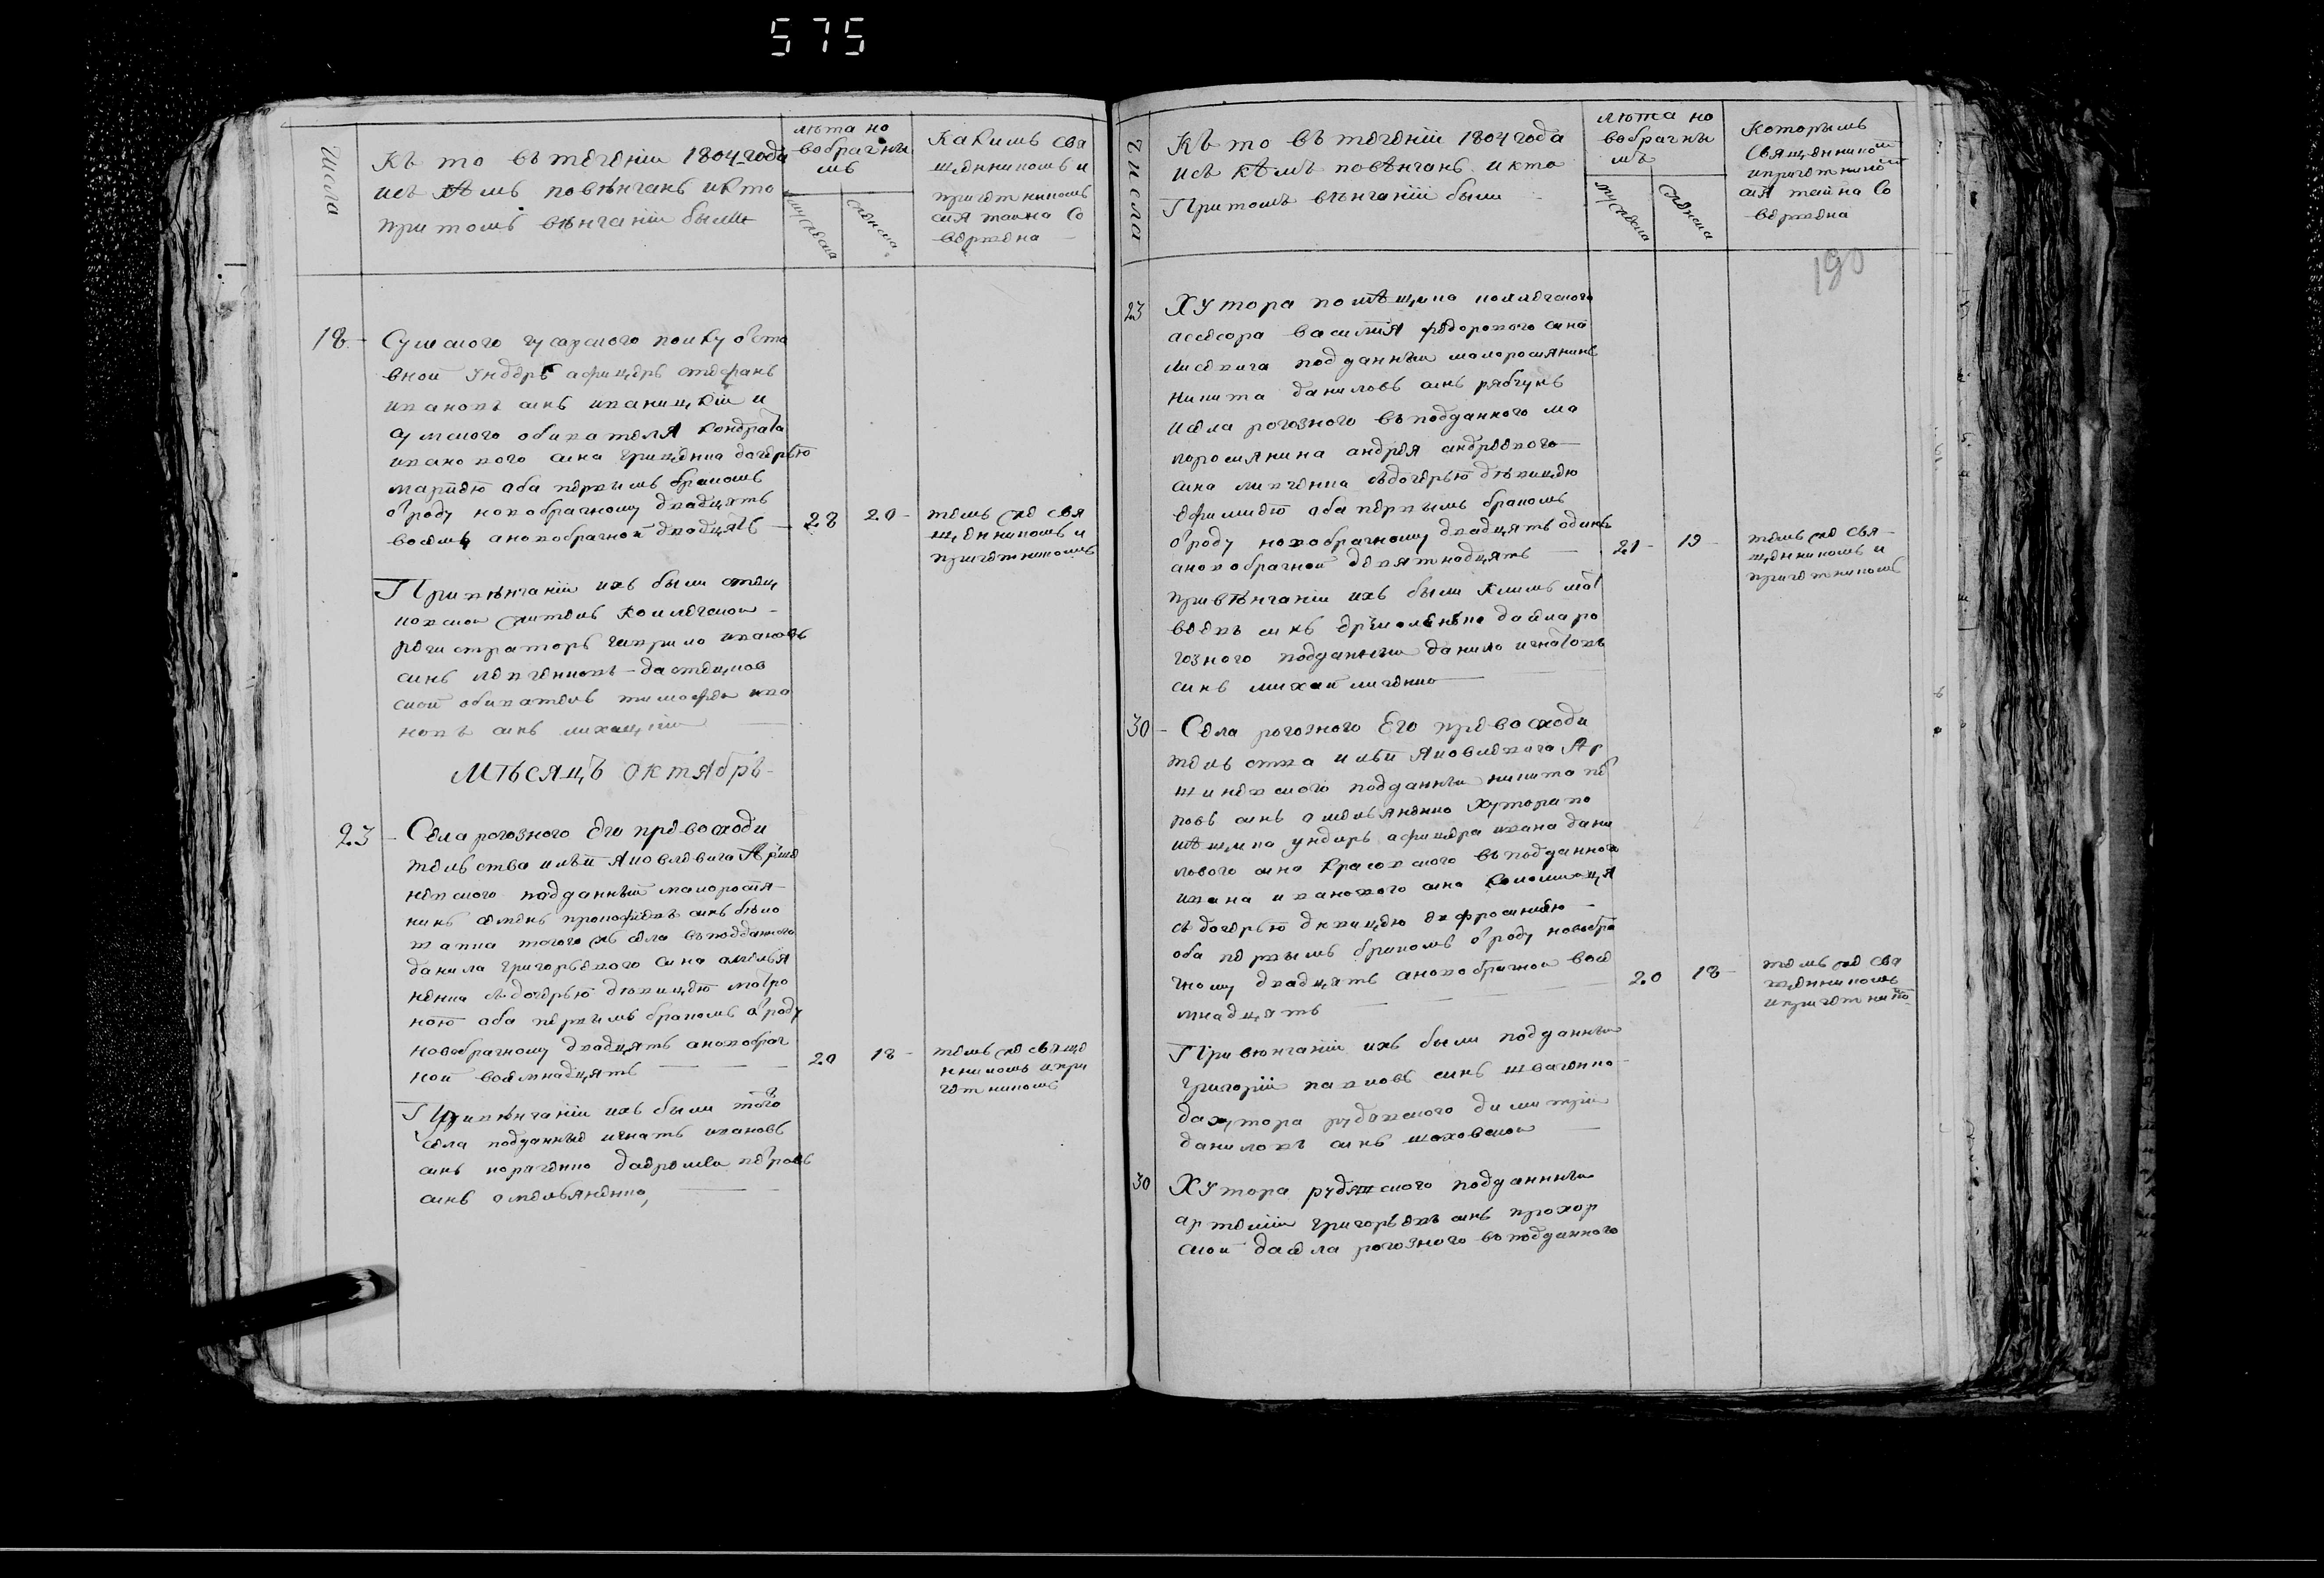 575
Числа
Къ то въ теченіи 1804 года
исъ кемъ повѣнчанъ икто
притомъ вѣнчаніи были
лѣта но
вобрачны
мъ
мужеска
женска
Какимъ свя
щенникомъ и
причетникомъ
сия таина со
вержена
18
Сумского гусарского полку oтста
вной ундеръ афицеръ стефанъ
ивановъ синъ иваницкій и
сумского обивателя кондрата
иванового сина гриценка дочерью
марфею оба первымъ бракомъ
отроду новобрачному двадцять
восемъ ановобрачной двадцять
28
20
темъ же свя
щенникомъ и
причетникомъ
Привѣнчаніи ихъ были
коллегской
регистраторъ гаврило ивановъ
синъ левченковъ да
ской обиватель тимофей ива
новъ синъ
Мѣсяцъ октябръ
23
Села рогозного его превосходи
тельства иліи Яковлевича Арше
невского подданный малоросия
нинъ семенъ прокофіевъ синъ бѣло
шапка тогожъ села въподданного
данила григорьевого сина омелья
ненка съдочерью дѣвицею матро
ною оба первымъ бракомъ отроду
новобрачному двадцять ановобрач
ной восемнадцять
20
18
темъ же свяще
нникомъ ипри
четникомъ
Привѣнчаніи ихъ были того
села подданные игнатъ ивановъ
синъ даеремеи петровъ
синъ омельяненко,
Числа
Къ то въ теченіи 1804 года
исъ кемъ повѣнчанъ икто
Притомъ вѣнчаніи были
лѣта но
вобрачны
мъ
мужеска
женска
Которымъ
священникомъ
ипричетнико
сия тайна со
вержена
190
23
Хутора помѣщика коллегского
асесора василія федорового сина
лисевича подданный малоросиянинъ
никита даниловъ синъ рябчунъ
исела рогозного въподданного ма
лоросиянина андрея андреевого
сина ливченка съдочерью дѣвицею
ефимиею оба первымъ бракомъ
отроду новобрачному двадцять одинъ
ановобрачной девятнадцять
21
19
темъ же свя
щенникомъ и
причетникомъ
привѣнчаніи ихъ были климъ мат
веевъ синъ ермоленко дасела ро
гозного подданный данило игнатовъ
синъ михайличенко
30
Села рогозного Его превосходи
тельства иліи Яковлевича Ар
шеневского подданный никита пет
ровъ синъ омельяненко хутора по
мѣщика ундеръ афицера ивана дани
лового сина красовского въподданного
ивана иванового сина коломийця
съ дочерью дѣвицею евфросиниею
оба первымъ бракомъ отроду новобра
чному двадцять ановобрачной восе
мнадцять
20
18
темъ же свя
щенникомъ
ипричетнико
Привѣнчаніи ихъ были подданный
григорій павловъ синъ шваченко
дахутора рудевского димитрій
даниловъ синъ маховской
30
Хутора рудевского подданный
артемій григорьевъ синъ прохор
ской дасела рогозного въподданного